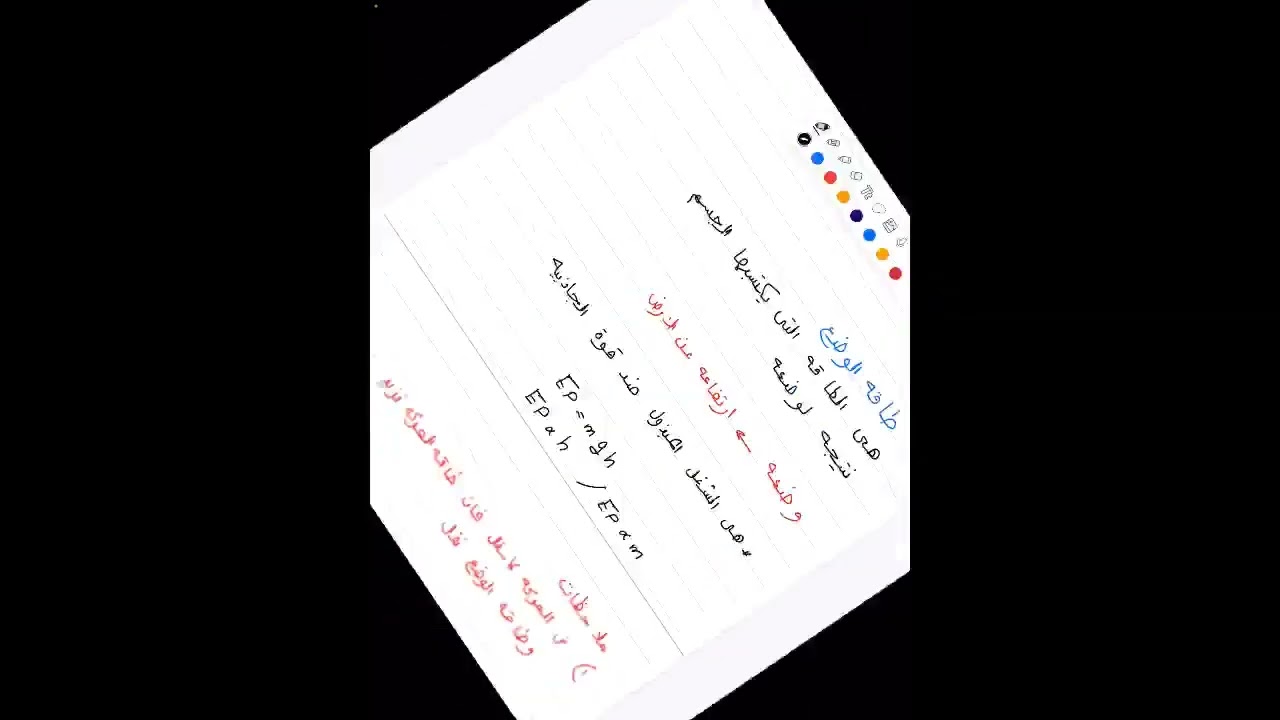 طاقه الوضع
هى الطاقه التى يكتسبها الجسم
نتيجه لوضعه
وضعه ← ارتفاعه عن الارض
* هى الشغل المبذول ضد قوة الجاذبيه
Ep = mgh / Ep α m
Ep α h
ملاحظات
١) فى الحركه لاسفل فان طاقه الحركه تزيد
وطاقه الوضع تقل